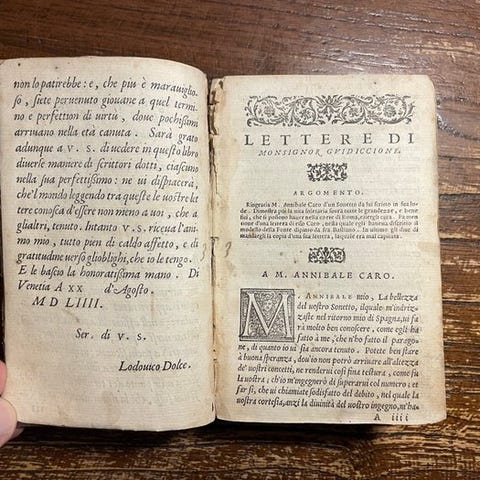 non lo patirebbe: e, che piu è marauiglio
so, siete peruenuto giouane a quel termi
no e perfettion di uirtù, doue pochissimi
arriuano nella età canuta. Sarà grato
adunque a V. S. di uedere in questo libro
diuerse maniere di scrittori dotti, ciascuno
nella sua perfettissimo: ne ui dispiacerà,
che'l mondo leggendo tra queste le uostre let
tere conosca d'essere non meno a uoi, che a
gli altri, tenuto. Intanto V. S. riceua l'ani
mo mio, tutto pien di caldo affetto, e di
gratitudine uerso gli oblighi, che io le tengo.
E le bascio la honoratissima mano. Di
Venetia A XX d'Agosto.
M D LIIII.
Ser. di V. S.
Lodouico Dolce.
LETTERE DI
MONSIGNOR GVIDICCIONE.
ARGOMENTO.
Ringratia M. Annibale Caro d'un Sonetto da lui scritto in sua lo
de. Dimostra poi la uita solitaria
a M. ANNIBALE CARO.
M. ANNIBALE mio, La bellezza
del uostro Sonetto, il quale m'indriz
zaste nel ritorno mio di Spagna, ui fa
rà molto ben conoscere, come egli hà
fatto à me, che n'ho fatto il parago
ne, di quanto io ui sia ancora tenuto. Potete ben stare
à buona speranza, che s'io non potrò arriuare all'altezza
de' uostri concetti, ne renderui così fina testura, come fu
la uostra; ch'io m'ingegnerò di superarui col numero; et
far sì, che ui chiamiate sodisfatto del debito, nel quale la
uostra cortesia, anzi la diuinità del uostro ingegno, m'ha
A iiii